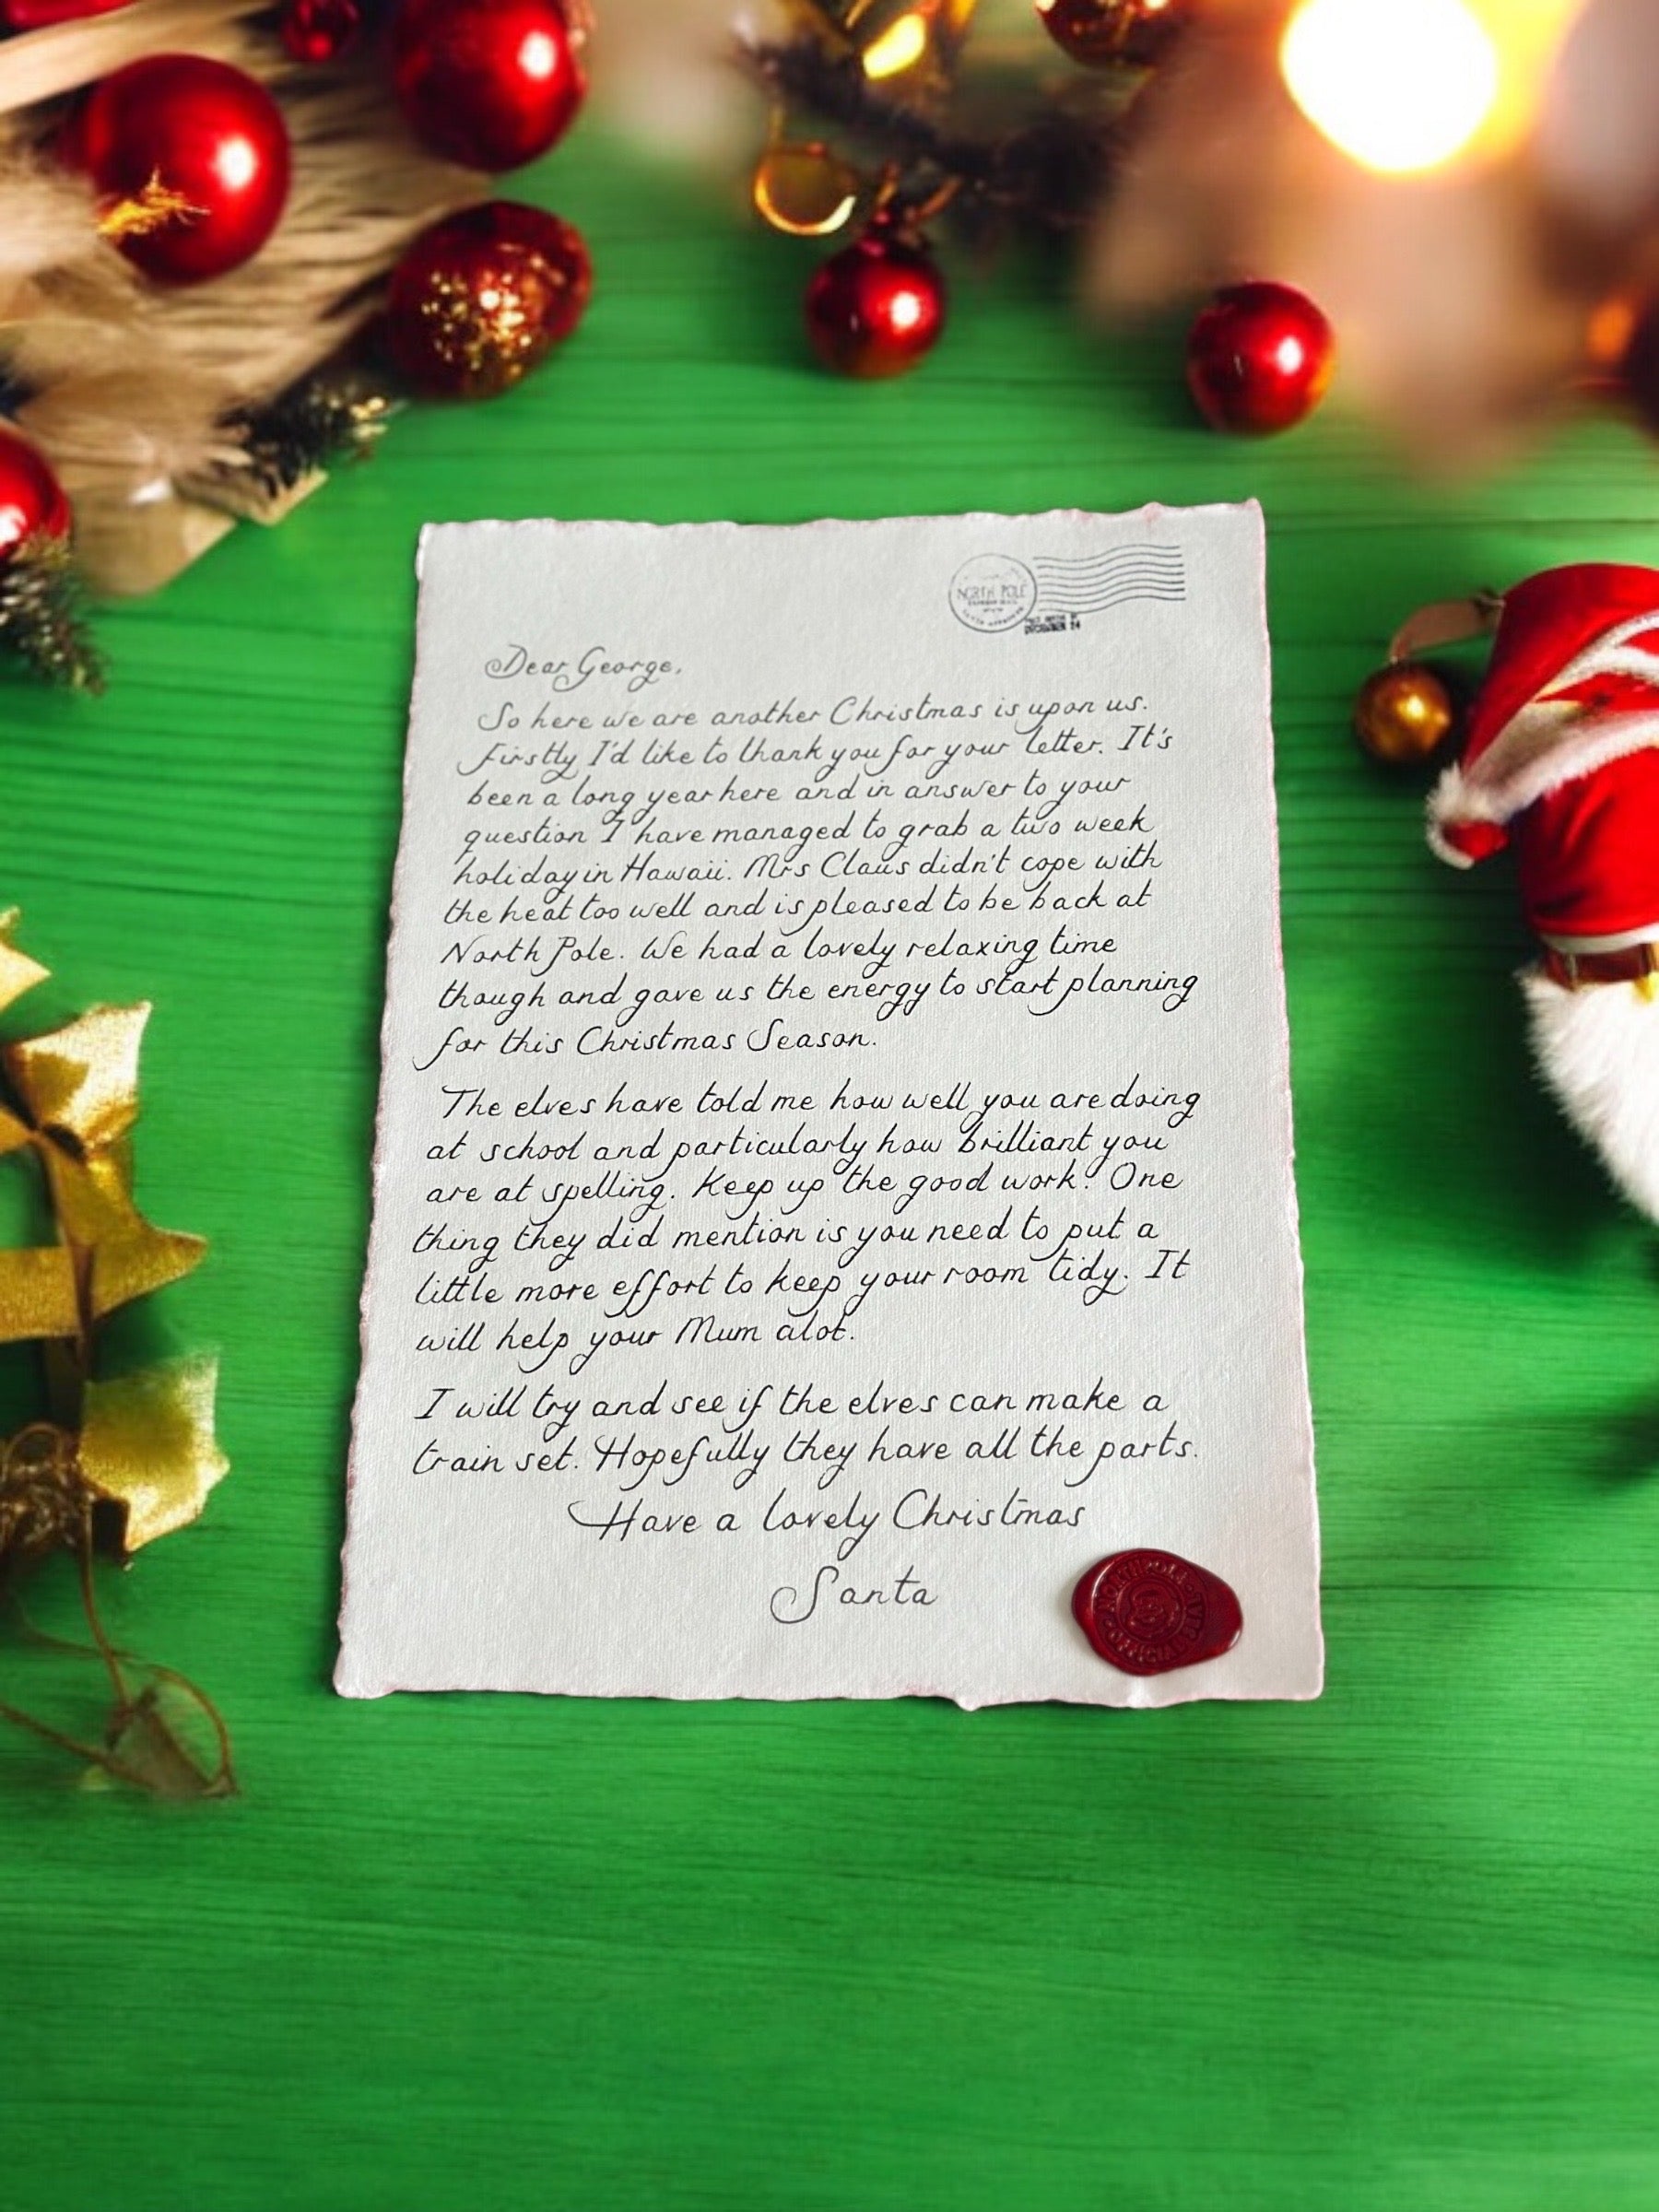 NORTH POLE
DECEMBER 24
Dear George,
So here we are another Christmas is upon us.
Firstly I'd like to thank you for your letter. It's
been a long year here and in answer to your
question I have managed to grab a two week
holiday in Hawaii. Mrs Claus didn't cope with
the heat too well and is pleased to be back at
North Pole. We had a lovely relaxing time
though and gave us the energy to start planning
for this Christmas Season.
The elves have told me how well you are doing
at school and particularly how brilliant you
are at spelling. Keep up the good work! One
thing they did mention is you need to put a
little more effort to keep your room tidy. It
will help your Mum alot.
I will try and see if the elves can make a
train set. Hopefully they have all the parts.
Have a lovely Christmas
Santa
NORTH POLE
OFFICIAL